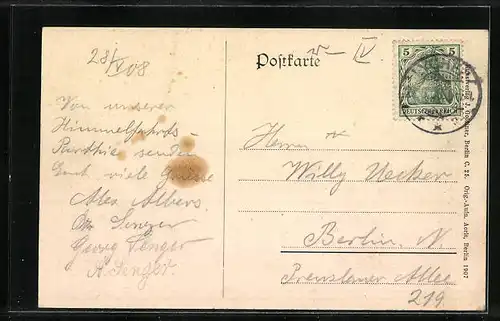 28/V 08
Postkarte
Von unserer
Himmelfahrts
senden
viele Grüße
Alex Albers.
Georg Senger
A. Senger.
5 5
DEUTSCHES REICH
Herrn
Willy Uecker
Berlin. N.
Prenslauer Allee
219
Berlin C. 25. Orig.-Aufn. Aerit, Berlin 1907